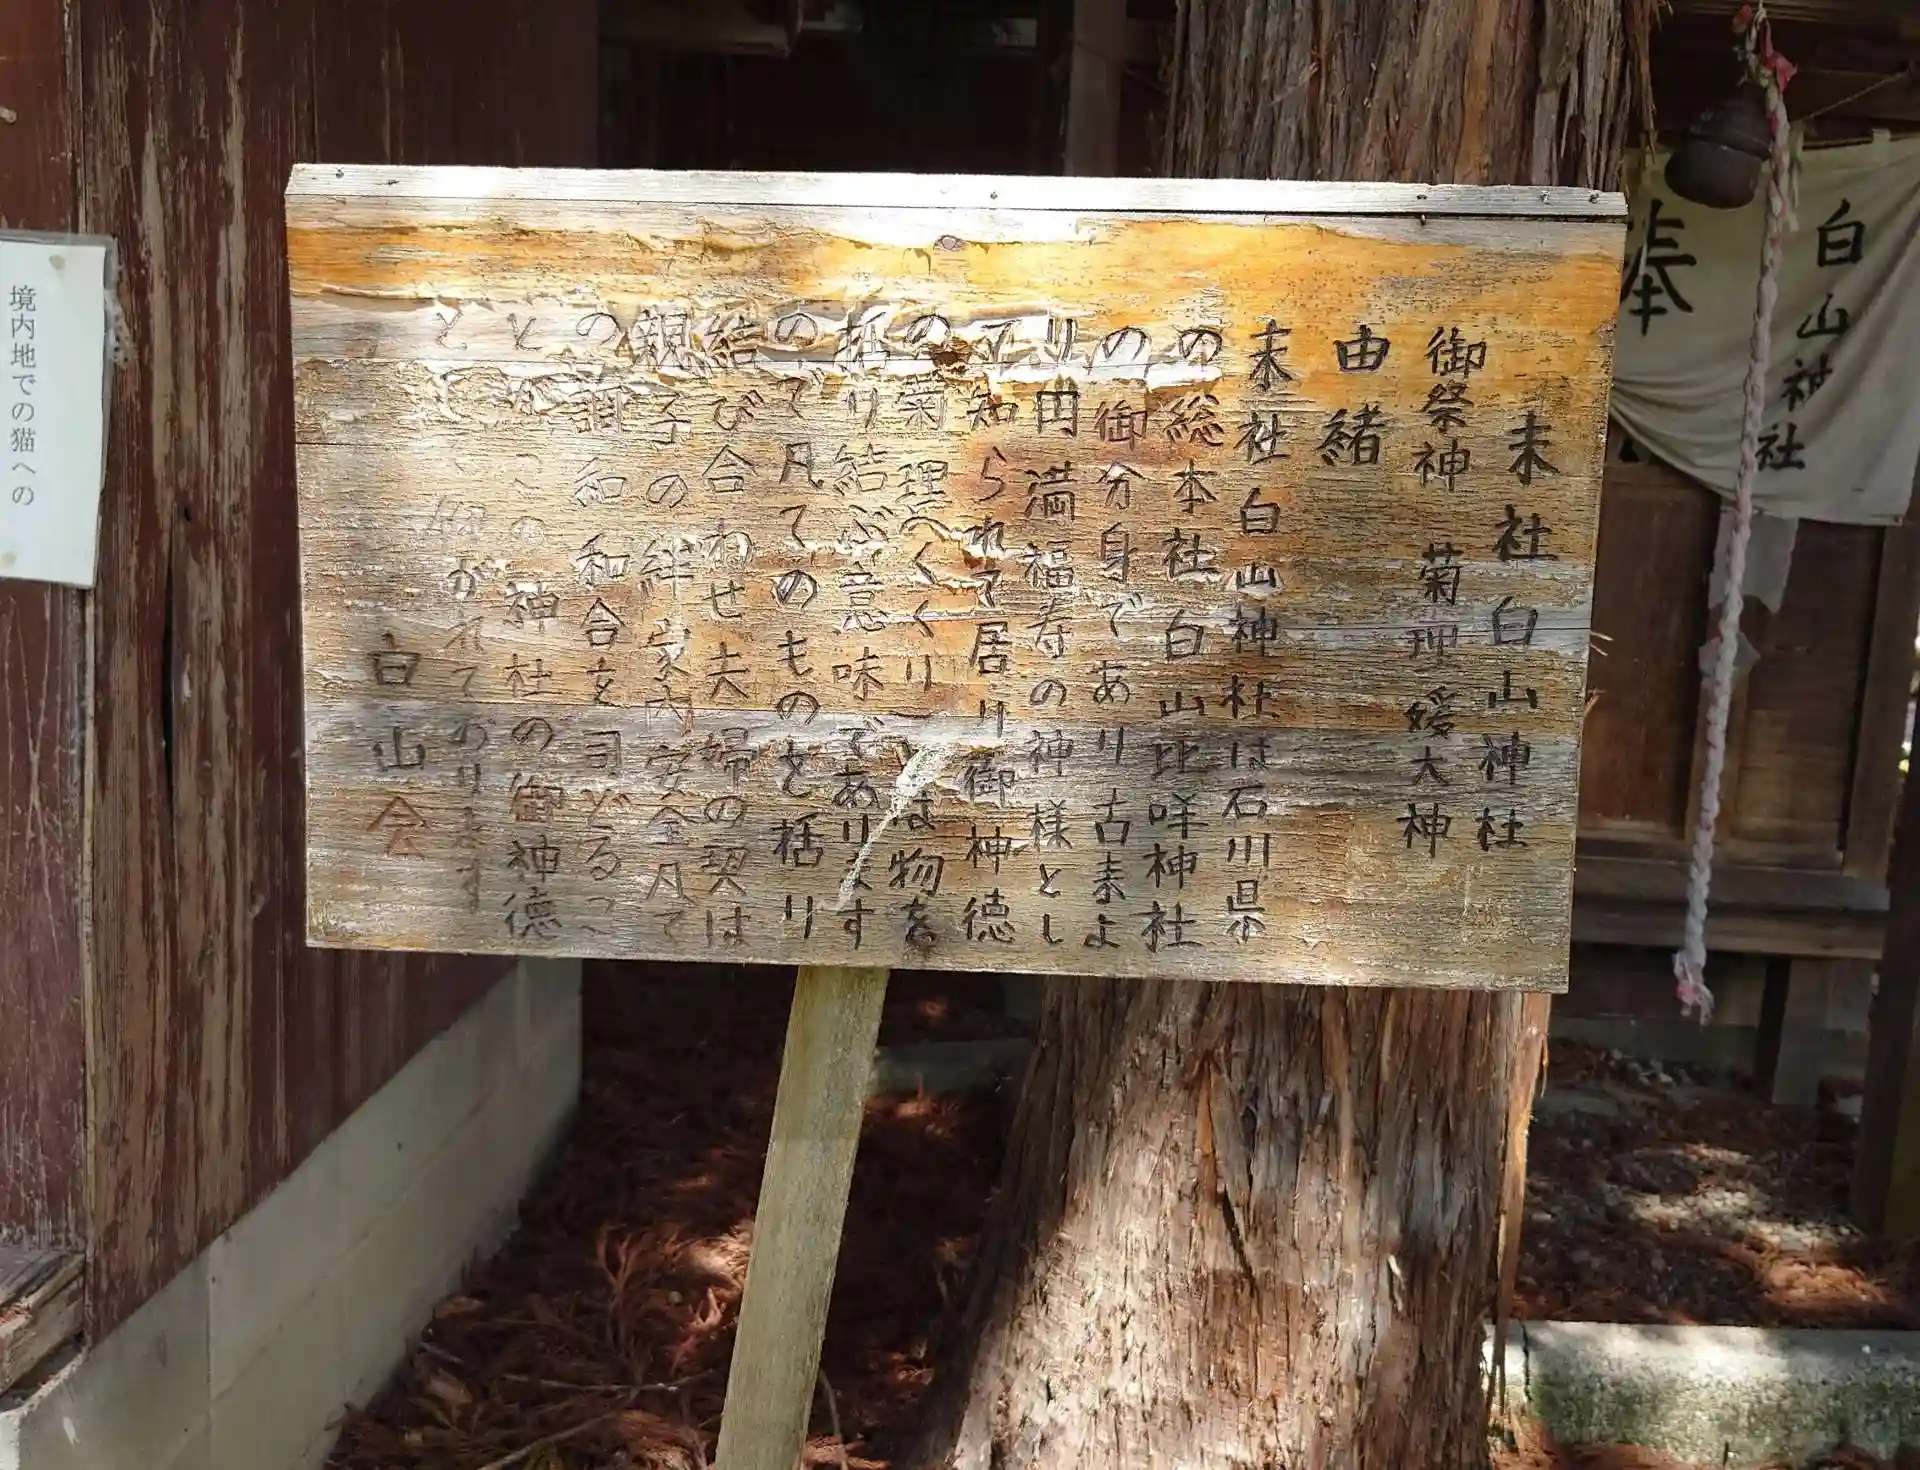 末社白山神社
御祭神 菊理媛大神
由緒
末社白山神社は石川県
の総本社白山比咩神社
の御分身であり古来よ
り円満福寿の神様とし
て知られて居り御神徳
の菊理(くくり)は物を
括り結ぶ意味であります
ので凡てのものを括り
結び合わせ夫婦の契は
親子の絆家内安全凡て
の調和和合を司どるこ
と この神社の御神徳
と がれてのります
白山会
白山神社
奉
境内地での猫への